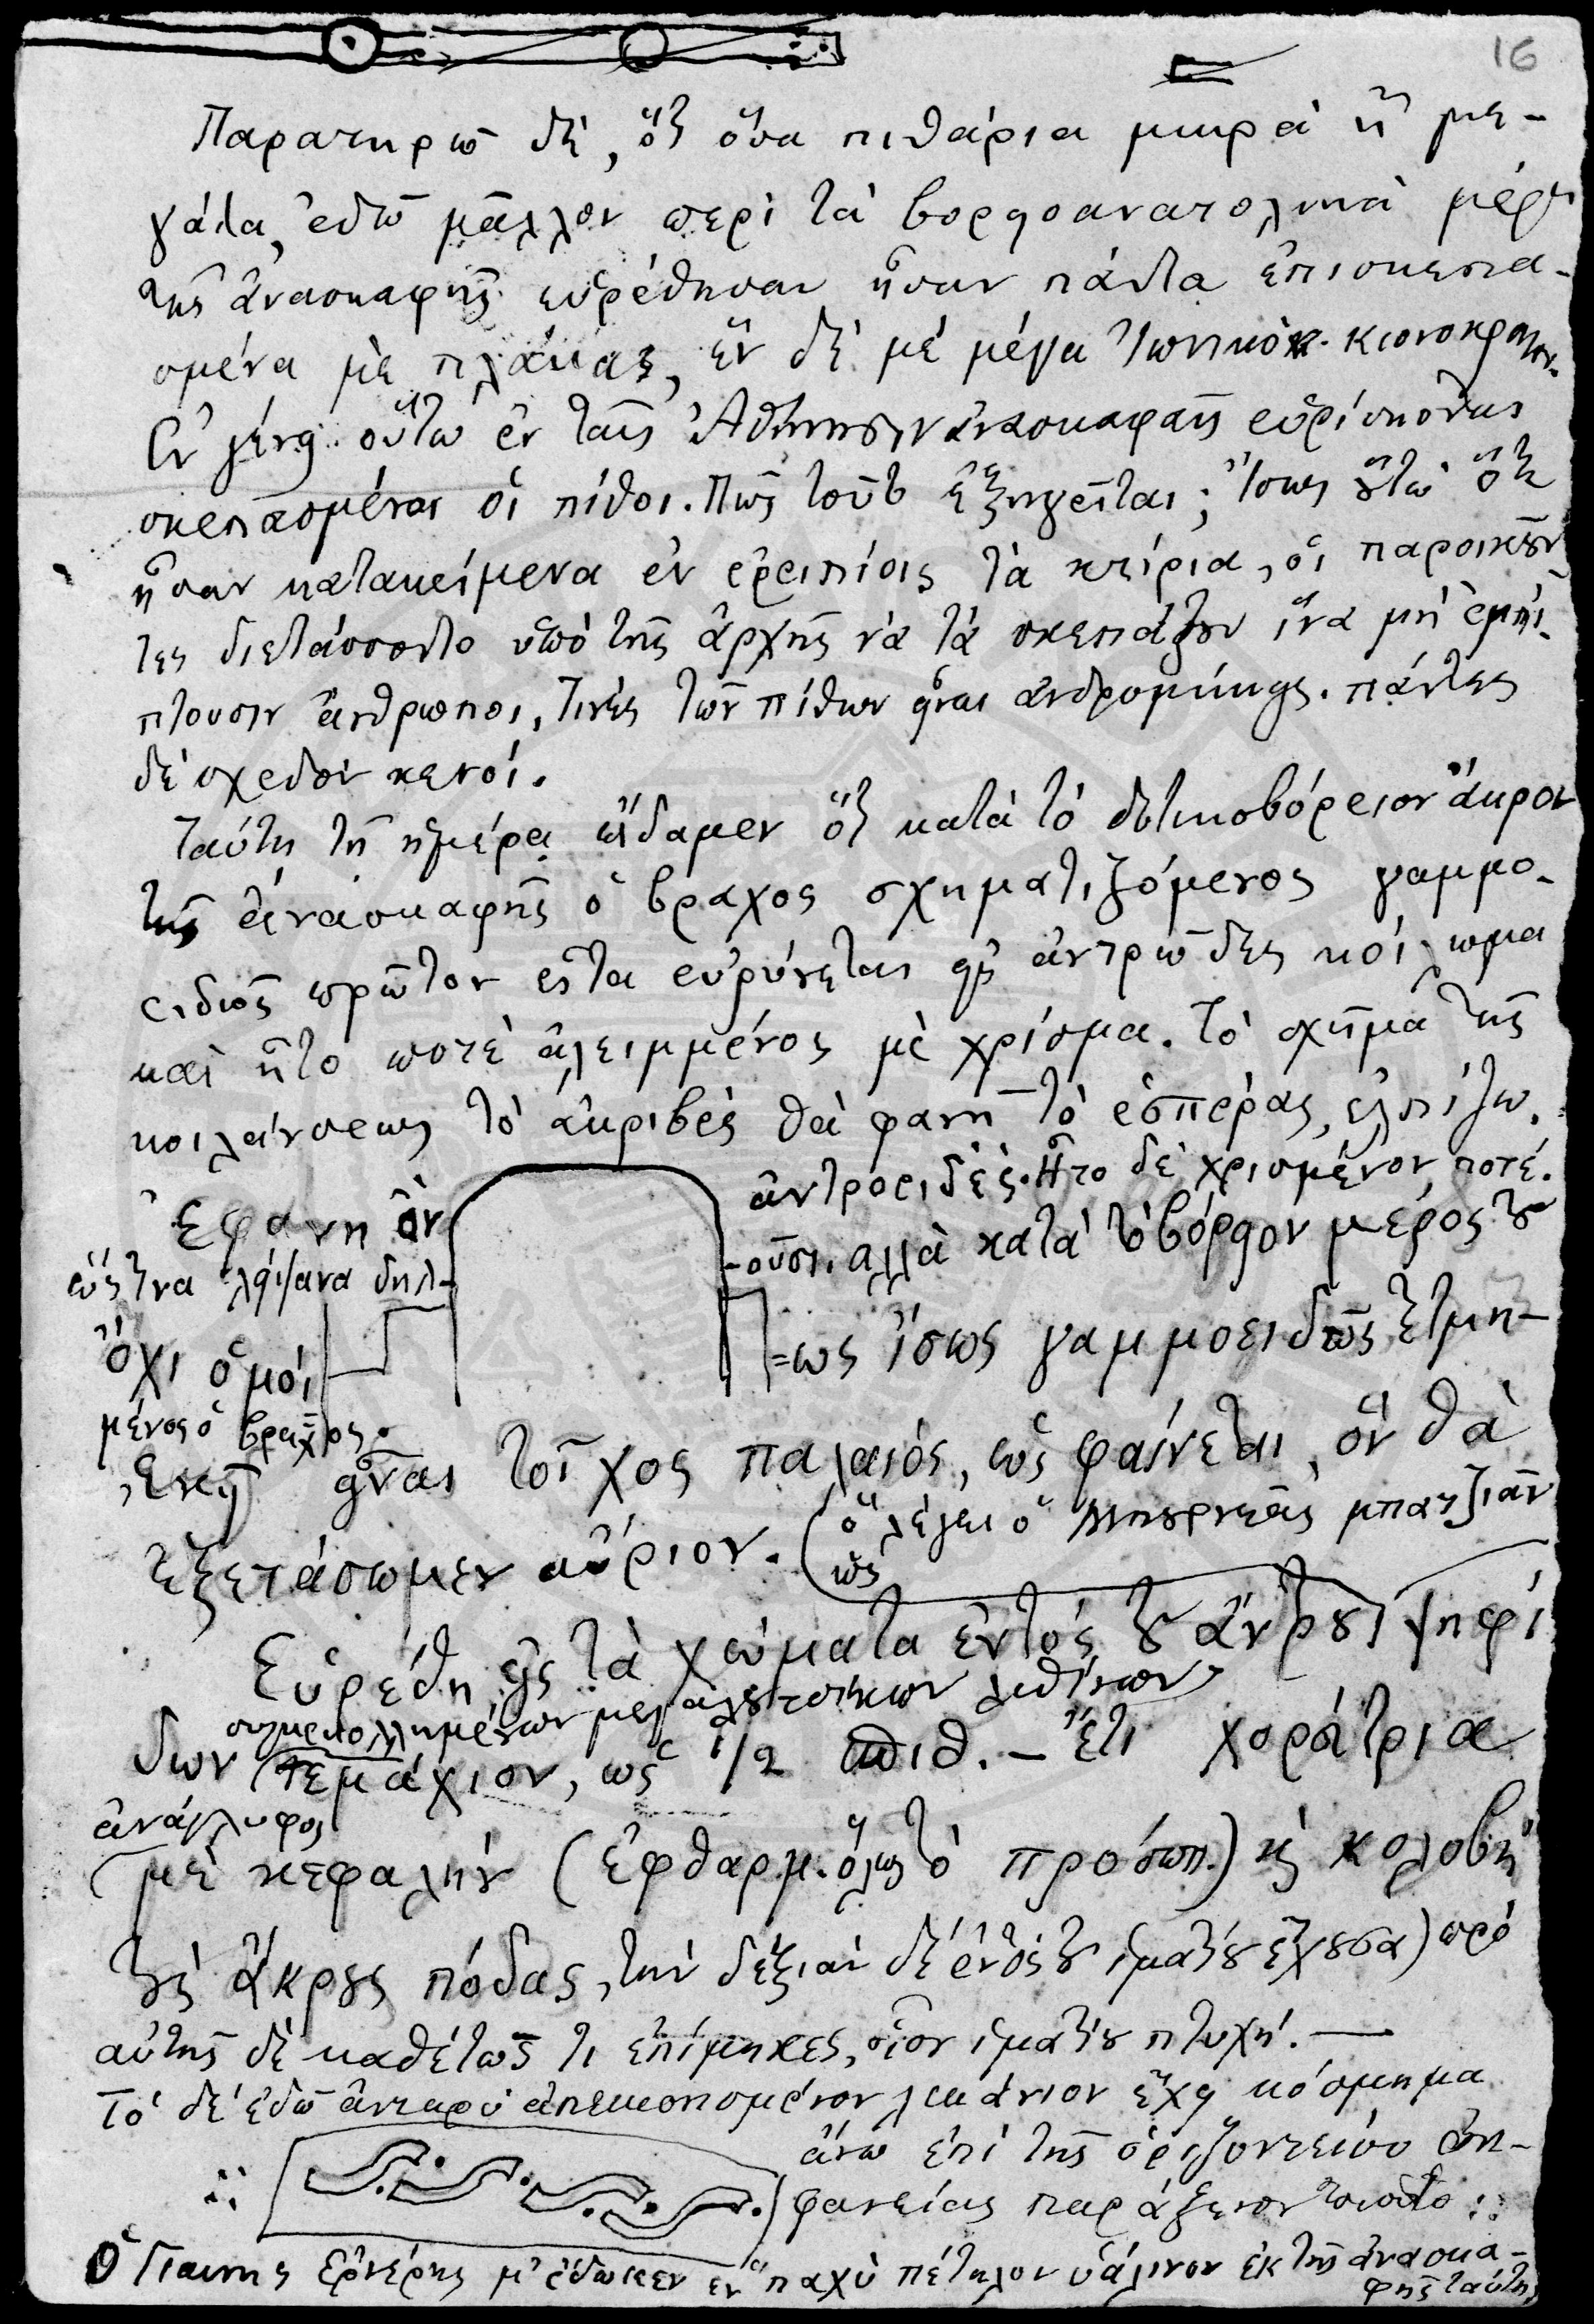 16
Παρατηρῶ δὲ, ὅτι ὅσα πιθάρια μικρὰ ἢ με-
γάλα, ἐδῶ μᾶλλον περὶ τὰ βορειοανατολικὰ μέρη
τῆς ἀνασκαφῆς εὑρέθησαν ἦσαν πάντα ἐπισκεπα-
σμένα μὲ πλάκας, ἓν δὲ μὲ μέγα Ἰωνικὸν κιονόκρανον.
Ἐν γένει οὕτω ἐν ταῖς Ἀθήνησιν ἀνασκαφαῖς εὑρίσκονται
σκεπασμένοι οἱ πίθοι. Πῶς τοῦτο ἐξηγεῖται; Ἴσως οὕτω ὅτε
ἦσαν κατακείμενα ἐν ἐρειπίοις τὰ κτίρια, οἱ παροικοῦν
τες διετάσσοντο ὑπὸ τῆς ἀρχῆς νὰ τὰ σκεπάζουν ἵνα μὴ ἐμπί-
πτουσιν ἄνθρωποι. Τινὲς τῶν πίθων εἶναι ἀνδρομήκεις. πάντες
δὲ σχεδὸν κενοί.
Ταύτη τῇ ἡμέρᾳ εἴδαμεν ὅτι κατὰ τὸ δυτικοβόρειον ἄκρον
τῆς ἀνασκαφῆς ὁ βράχος σχηματιζόμενος γαμμο-
ειδῶς πρῶτον εἶτα εὐρύνεται εἰς ἀντρῶδες κοίλωμα
καὶ ἦτο ποτὲ ἀλειμμένος μὲ χρίσμα. Τὸ σχῆμα τῆς
κοιλάνσεως τὸ ἀκριβὲς θὰ φανῇ τὸ ἑσπέρας, ἐλπίζω.
Ἐφάνη ὂν ἀντροειδές. Ἦτο δὲ χρισμένον ποτέ.
ὥς τινα λείψανα δηλ- -οῦσι. ἀλλὰ κατὰ τὸ βόρειον μέρος τοῦ
ὄχι ὁμοί =ως ἴσως γαμμοειδῶς ἐτμη-
μένος ὁ βράχος.
Ἐκεῖ εἶναι τοῖχος παλαιός, ὡς φαίνεται, ὃν θὰ
ἐξετάσωμεν αὔριον. (ὡς ὁ λέγει ὁ μπατζιᾶν
Εὑρέθη εἰς τὰ χώματα ἐντὸς τοῦ ἄντρου ψηφί
δων συγκεκολλημένων μεγαλουτσίκων λιθίνων
τεμάχιον, ὡς 1/2 πιθ. — Ἔτι χοράτρια
ἀνάγλυφος
μὲ κεφαλὴν (ἐφθαρμ. ὅλως τὸ πρόσωπ.) κ̀ κολοβὴ
τοὺς ἄκρους πόδας, τὴν δεξιὰν δὲ ἐντὸς τοῦ ἱματίου ἔχουσα) πρὸ
αὐτῆς δὲ καθέτως τι ἐπίμηκες, οἷον ἱματίου πτυχή. —
Τὸ δὲ ἐδῶ ἀπεικονισμένον λεκάνιον ἔχει κόσμημα
ἄνω ἐπὶ τῆς ὁριζοντείου ἐπι-
φανείας παράξενον τοιοῦτο :
Ὁ Γιάννης μ' ἔδωκεν ἓν παχὺ πέταλον ὑάλινον ἐκ τῆς ἀνασκα-
φῆς ταύτης